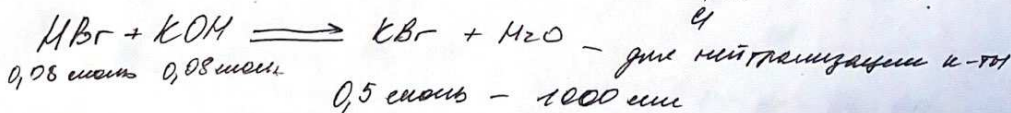 HBr + KOH ⟶ KBr + H2O – для нейтрализации к-ты
0,08 моль 0,08 моль
0,5 моль – 1000 мл